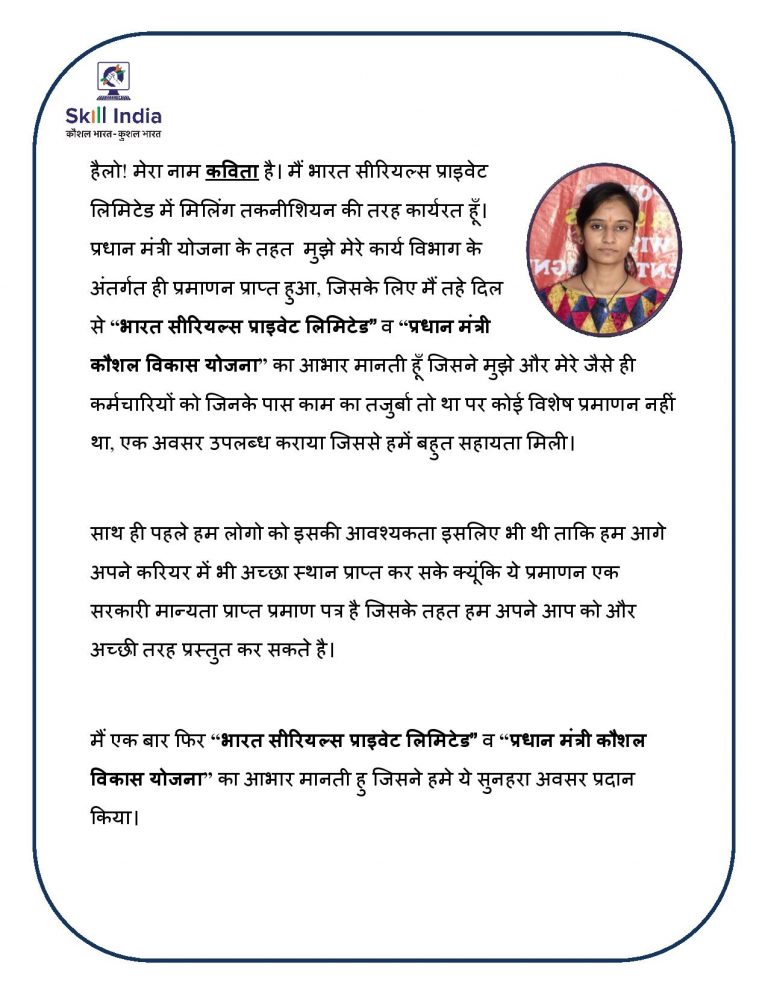 Skill India
कौशल भारत-कुशल भारत
हैलो! मेरा नाम कविता है। मैं भारत सीरियल्स प्राइवेट
लिमिटेड में मिलिंग तकनीशियन की तरह कार्यरत हूँ।
प्रधान मंत्री योजना के तहत मुझे मेरे कार्य विभाग के
अंतर्गत ही प्रमाणन प्राप्त हुआ, जिसके लिए मैं तहे दिल
से “भारत सीरियल्स प्राइवेट लिमिटेड” व “प्रधान मंत्री
कौशल विकास योजना” का आभार मानती हूँ जिसने मुझे और मेरे जैसे ही
कर्मचारियों को जिनके पास काम का तजुर्बा तो था पर कोई विशेष प्रमाणन नहीं
था, एक अवसर उपलब्ध कराया जिससे हमें बहुत सहायता मिली।
साथ ही पहले हम लोगो को इसकी आवश्यकता इसलिए भी थी ताकि हम आगे
अपने करियर में भी अच्छा स्थान प्राप्त कर सके क्यूंकि ये प्रमाणन एक
सरकारी मान्यता प्राप्त प्रमाण पत्र है जिसके तहत हम अपने आप को और
अच्छी तरह प्रस्तुत कर सकते है।
मैं एक बार फिर “भारत सीरियल्स प्राइवेट लिमिटेड” व “प्रधान मंत्री कौशल
विकास योजना” का आभार मानती हु जिसने हमे ये सुनहरा अवसर प्रदान
किया।